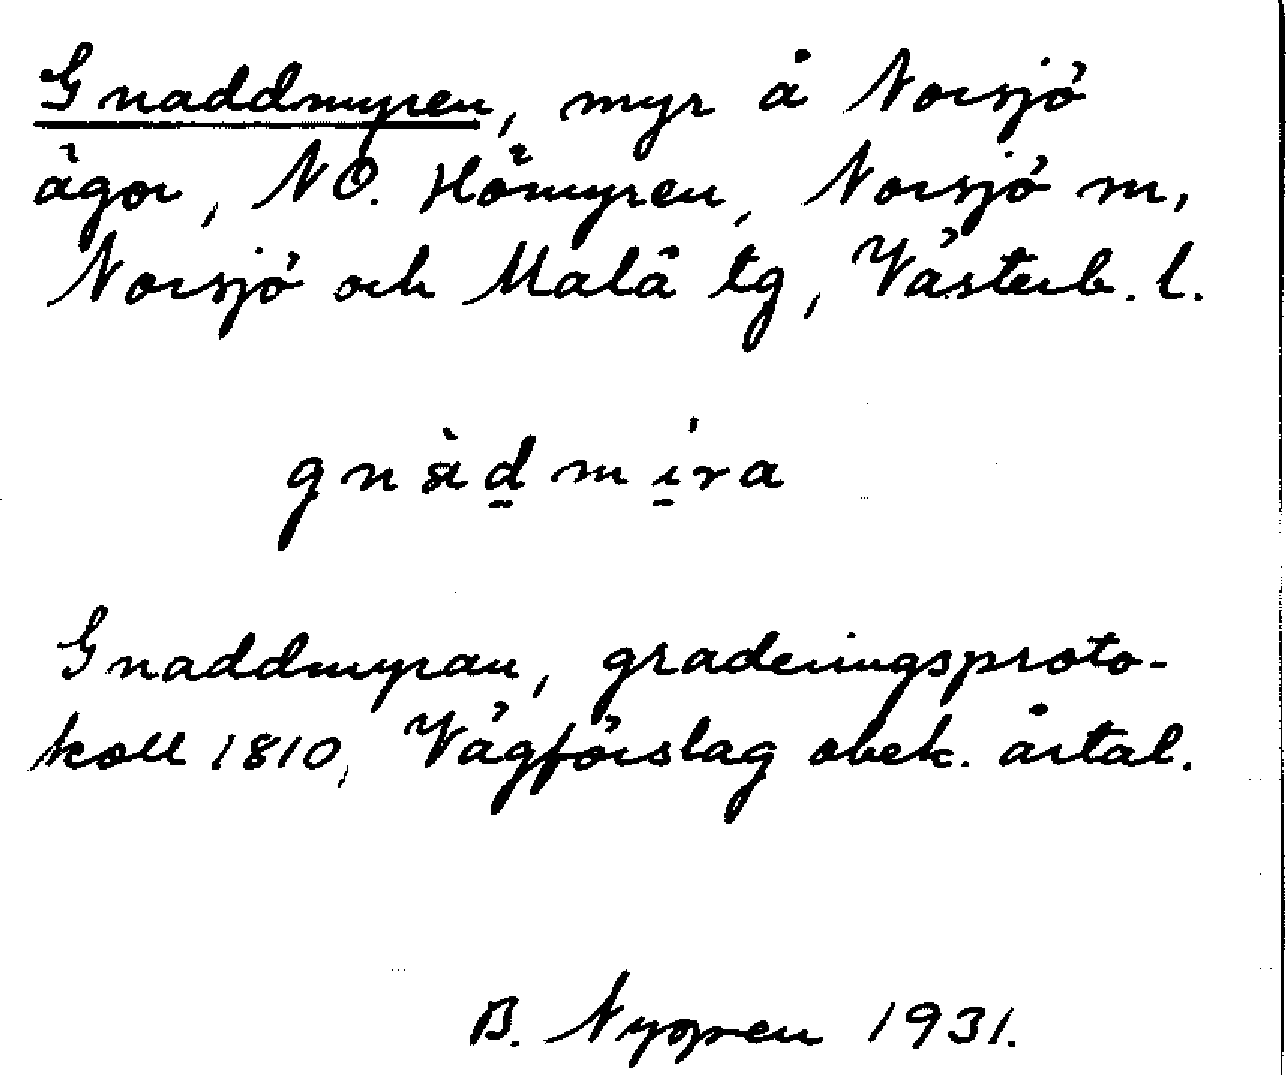 Gnaddmyren, myr å Norsjö
ägor, NO. Hömyren, Norsjö sn,
Norsjö och Malå tg, Västerb. l.
gnàdmíra
Gnaddmyran, graderingsproto-
koll 1810, Vägförslag obek. årtal.
B. Nygren 1931.